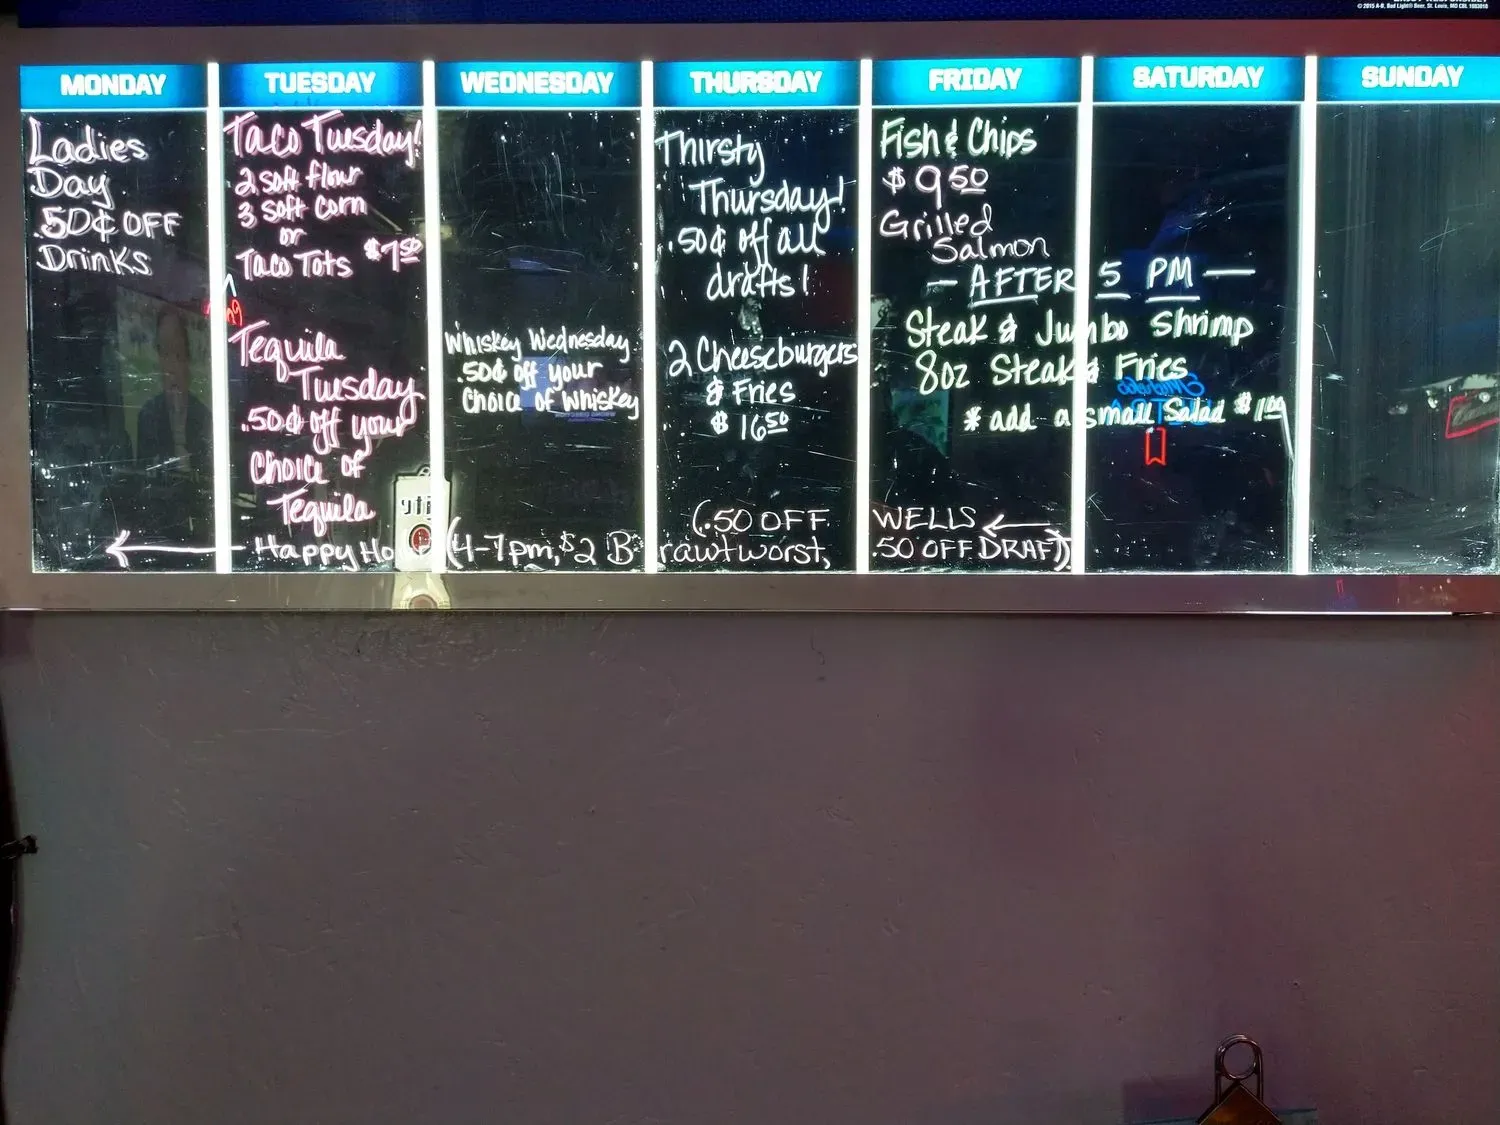 MONDAY
Ladies
Day
.50¢ OFF
Drinks
TUESDAY
Taco Tuesday!
2 soft flour
3 soft corn
or
Taco Tots $7.50
Tequila
Tuesday
.50¢ off your
Choice of
Tequila
WEDNESDAY
Whiskey Wednesday
.50¢ off your
Choice of Whiskey
THURSDAY
Thirsty
Thursday!
.50¢ off all
drafts!
2 Cheeseburgers
& Fries
$16.50
FRIDAY
Fish & Chips
$9.50
Grilled
Salmon
SATURDAY
— AFTER 5 PM —
Steak & Jumbo Shrimp
8oz Steak & Fries
* add a small Salad $1.00
SUNDAY
(.50 OFF WELLS
Happy Hour (4-7pm, $2 Brawtworst, .50 OFF DRAFT)